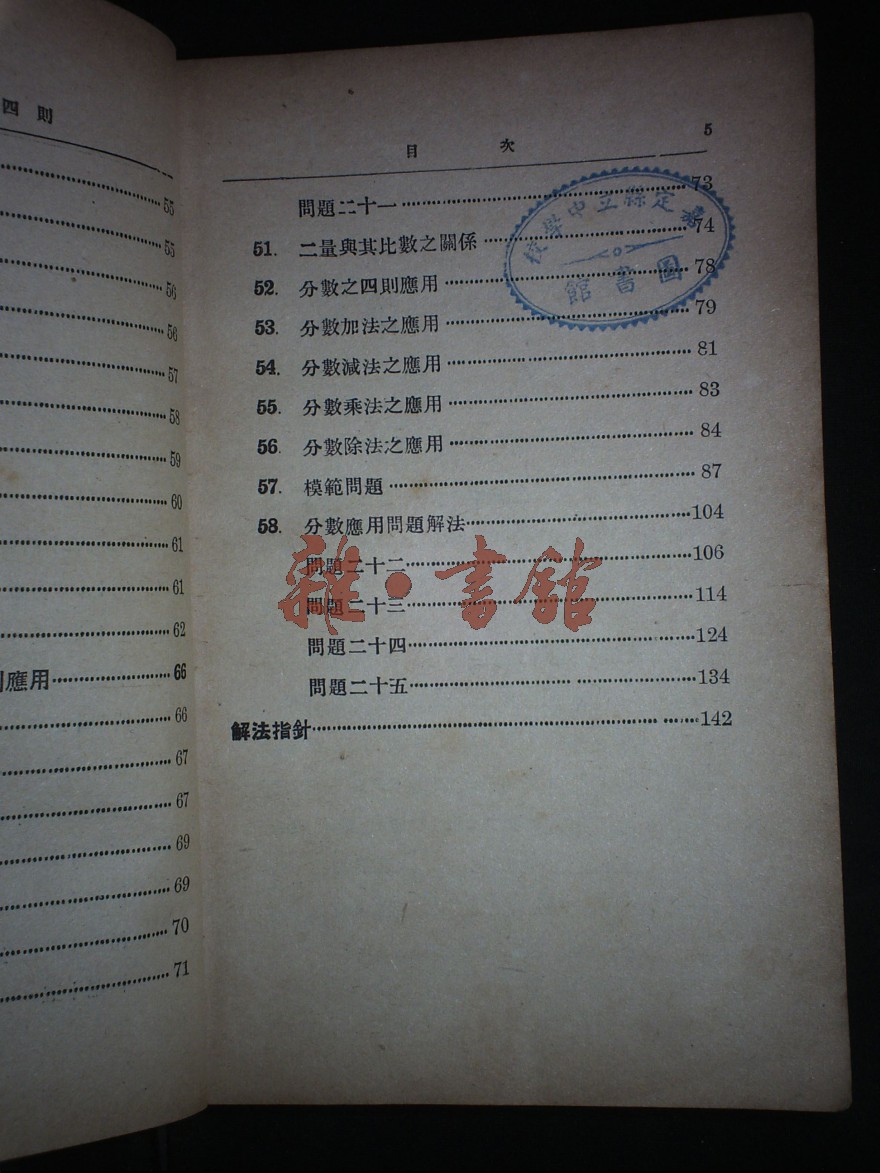 四則
55
55
56
56
57
58
59
60
61
61
62
則應用 66
66
67
67
69
69
70
71
目次 5
問題二十一 73
51. 二量與其比數之關係 74
52. 分數之四則應用 78
53. 分數加法之應用 79
54. 分數減法之應用 81
55. 分數乘法之應用 83
56. 分數除法之應用 84
57. 模範問題 87
58. 分數應用問題解法 104
問題二十二 106
問題二十三 114
問題二十四 124
問題二十五 134
解法指針 142
嘉定縣立中學校
圖書館
雜·書館